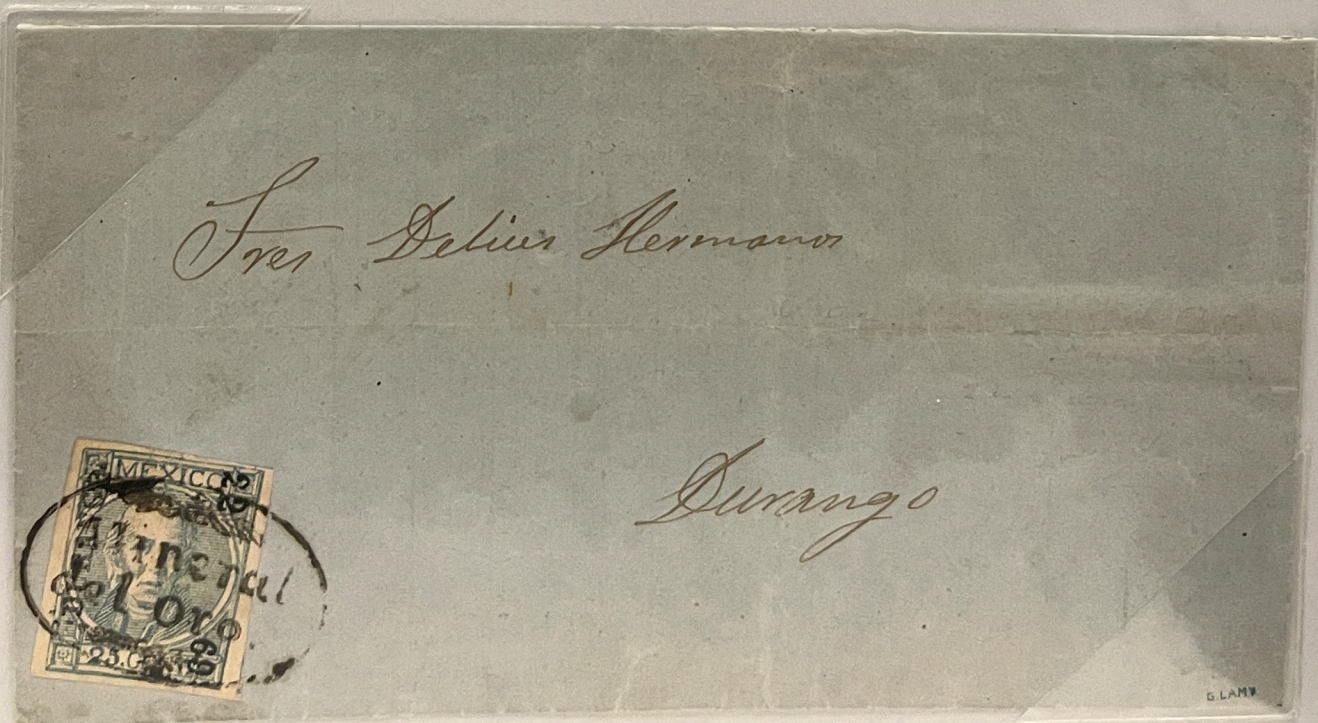 Sres Delius Hermanos
Durango
MEXICO
22
Mineral
del Oro
69
25. CENTS
G. LAMY